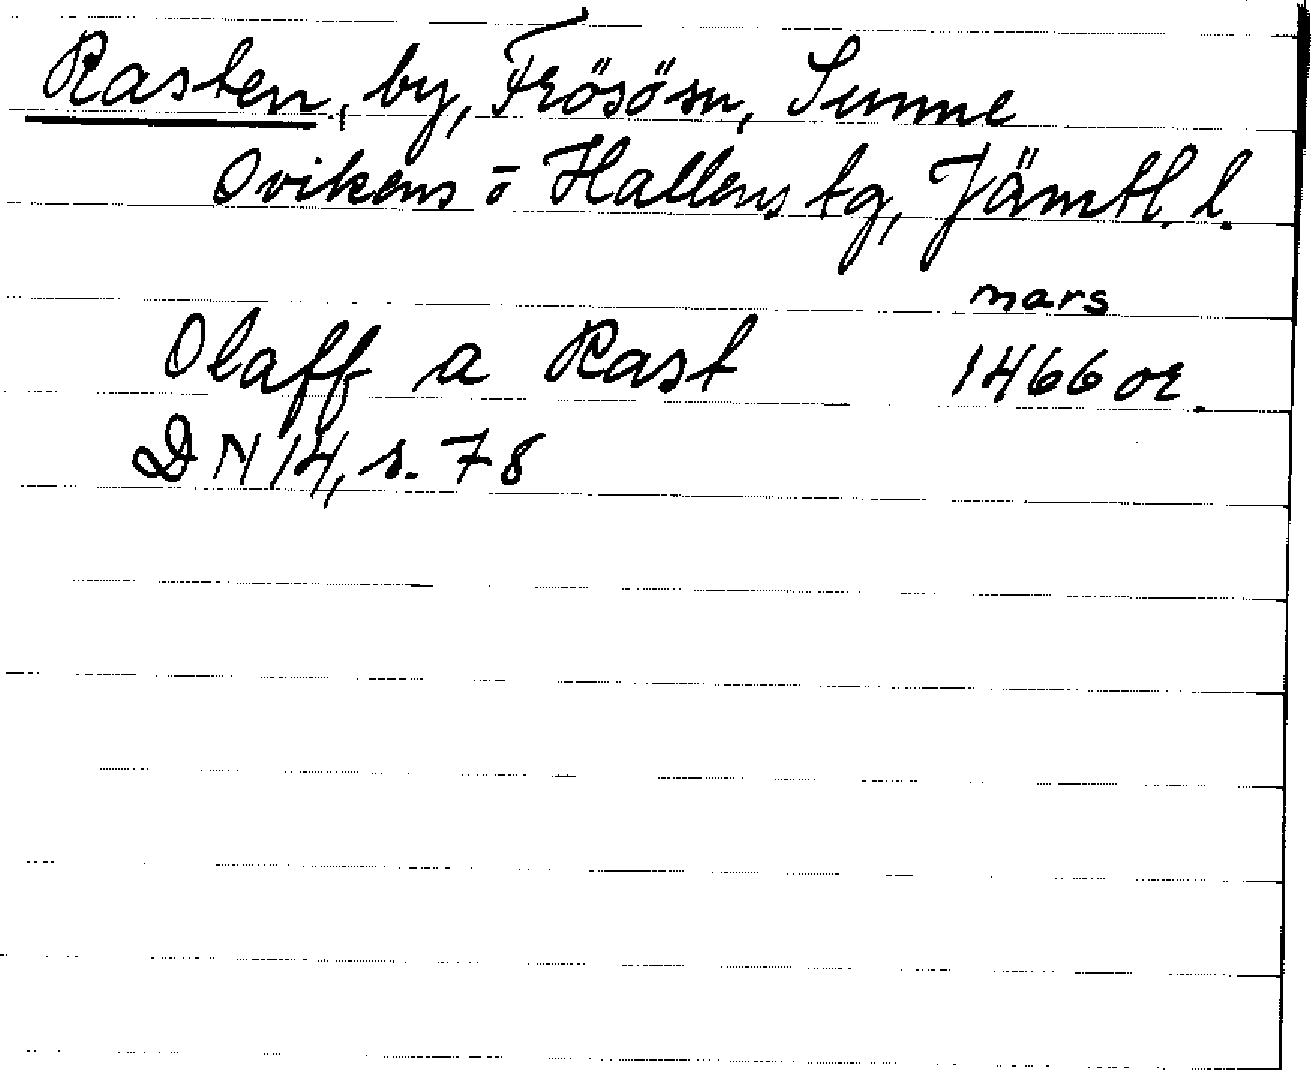 Rasten, by, Frösön, Sunne
Ovikens o Hallens tg, Jämtl. l.
mars
Olaff a Rast 1466 or.
DN 14, s. 78